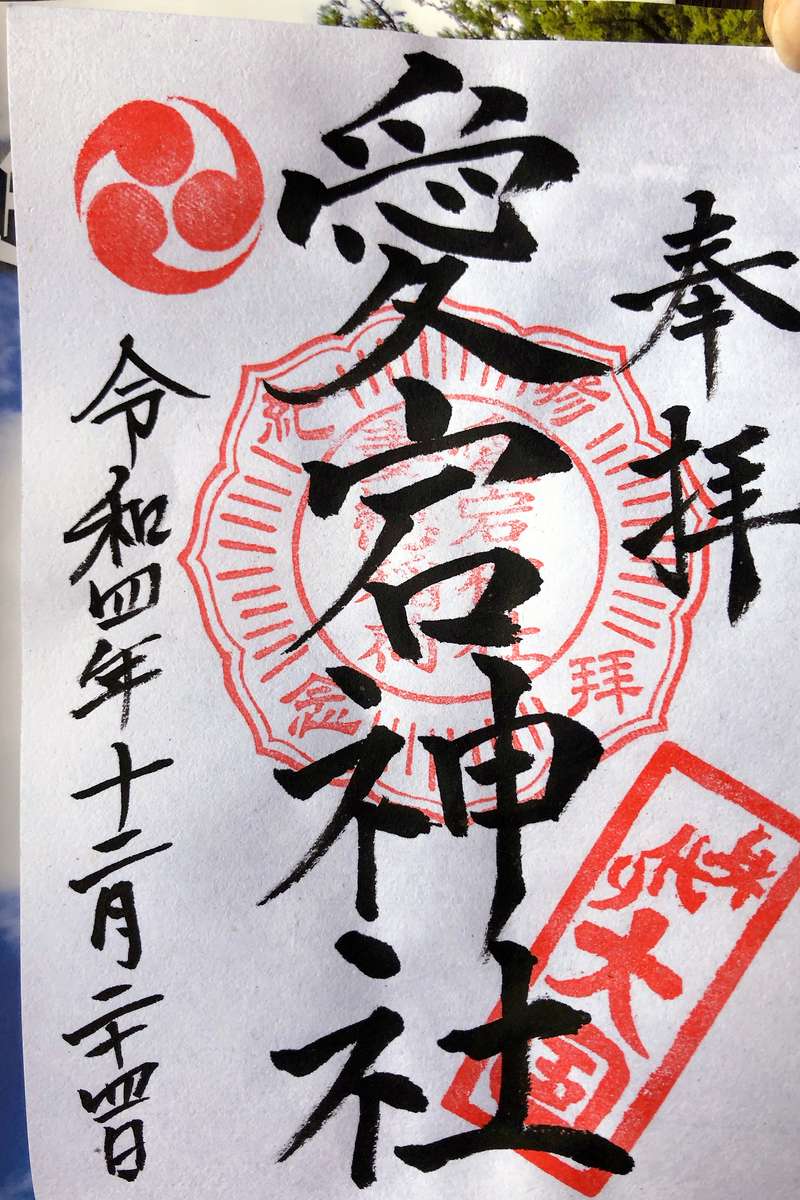 奉拝
愛宕神社
令和四年十二月二十四日
参拝
紀念
大国